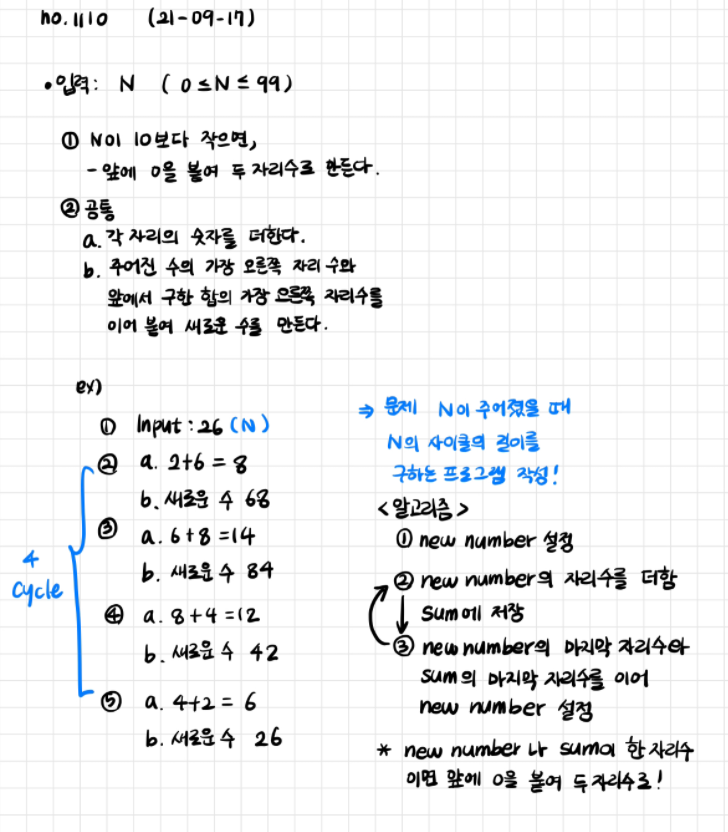 no.1110 (21-09-17)
•입력: N ( 0 ≤ N ≤ 99 )
① N이 10보다 작으면,
- 앞에 0을 붙여 두 자리수로 만든다.
② 공통
a. 각 자리의 숫자를 더한다.
b. 주어진 수의 가장 오른쪽 자리 수와
앞에서 구한 합의 가장 오른쪽 자리수를
이어 붙여 새로운 수를 만든다.
ex)
① Input : 26 (N)
② a. 2+6 = 8
b. 새로운 수 68
③ a. 6+8 =14
b. 새로운 수 84
④ a. 8+4 =12
b. 새로운 수 42
⑤ a. 4+2 = 6
b. 새로운 수 26
4
cycle
⇒ 문제 N이 주어졌을 때
N의 사이클의 길이를
구하는 프로그램 작성!
<알고리즘>
① new number 설정
② new number의 자리수를 더함
sum에 저장
③ new number의 마지막 자리수와
sum의 마지막 자리수를 이어
new number 설정
* new number 나 sum이 한 자리수
이면 앞에 0을 붙여 두 자리수로!